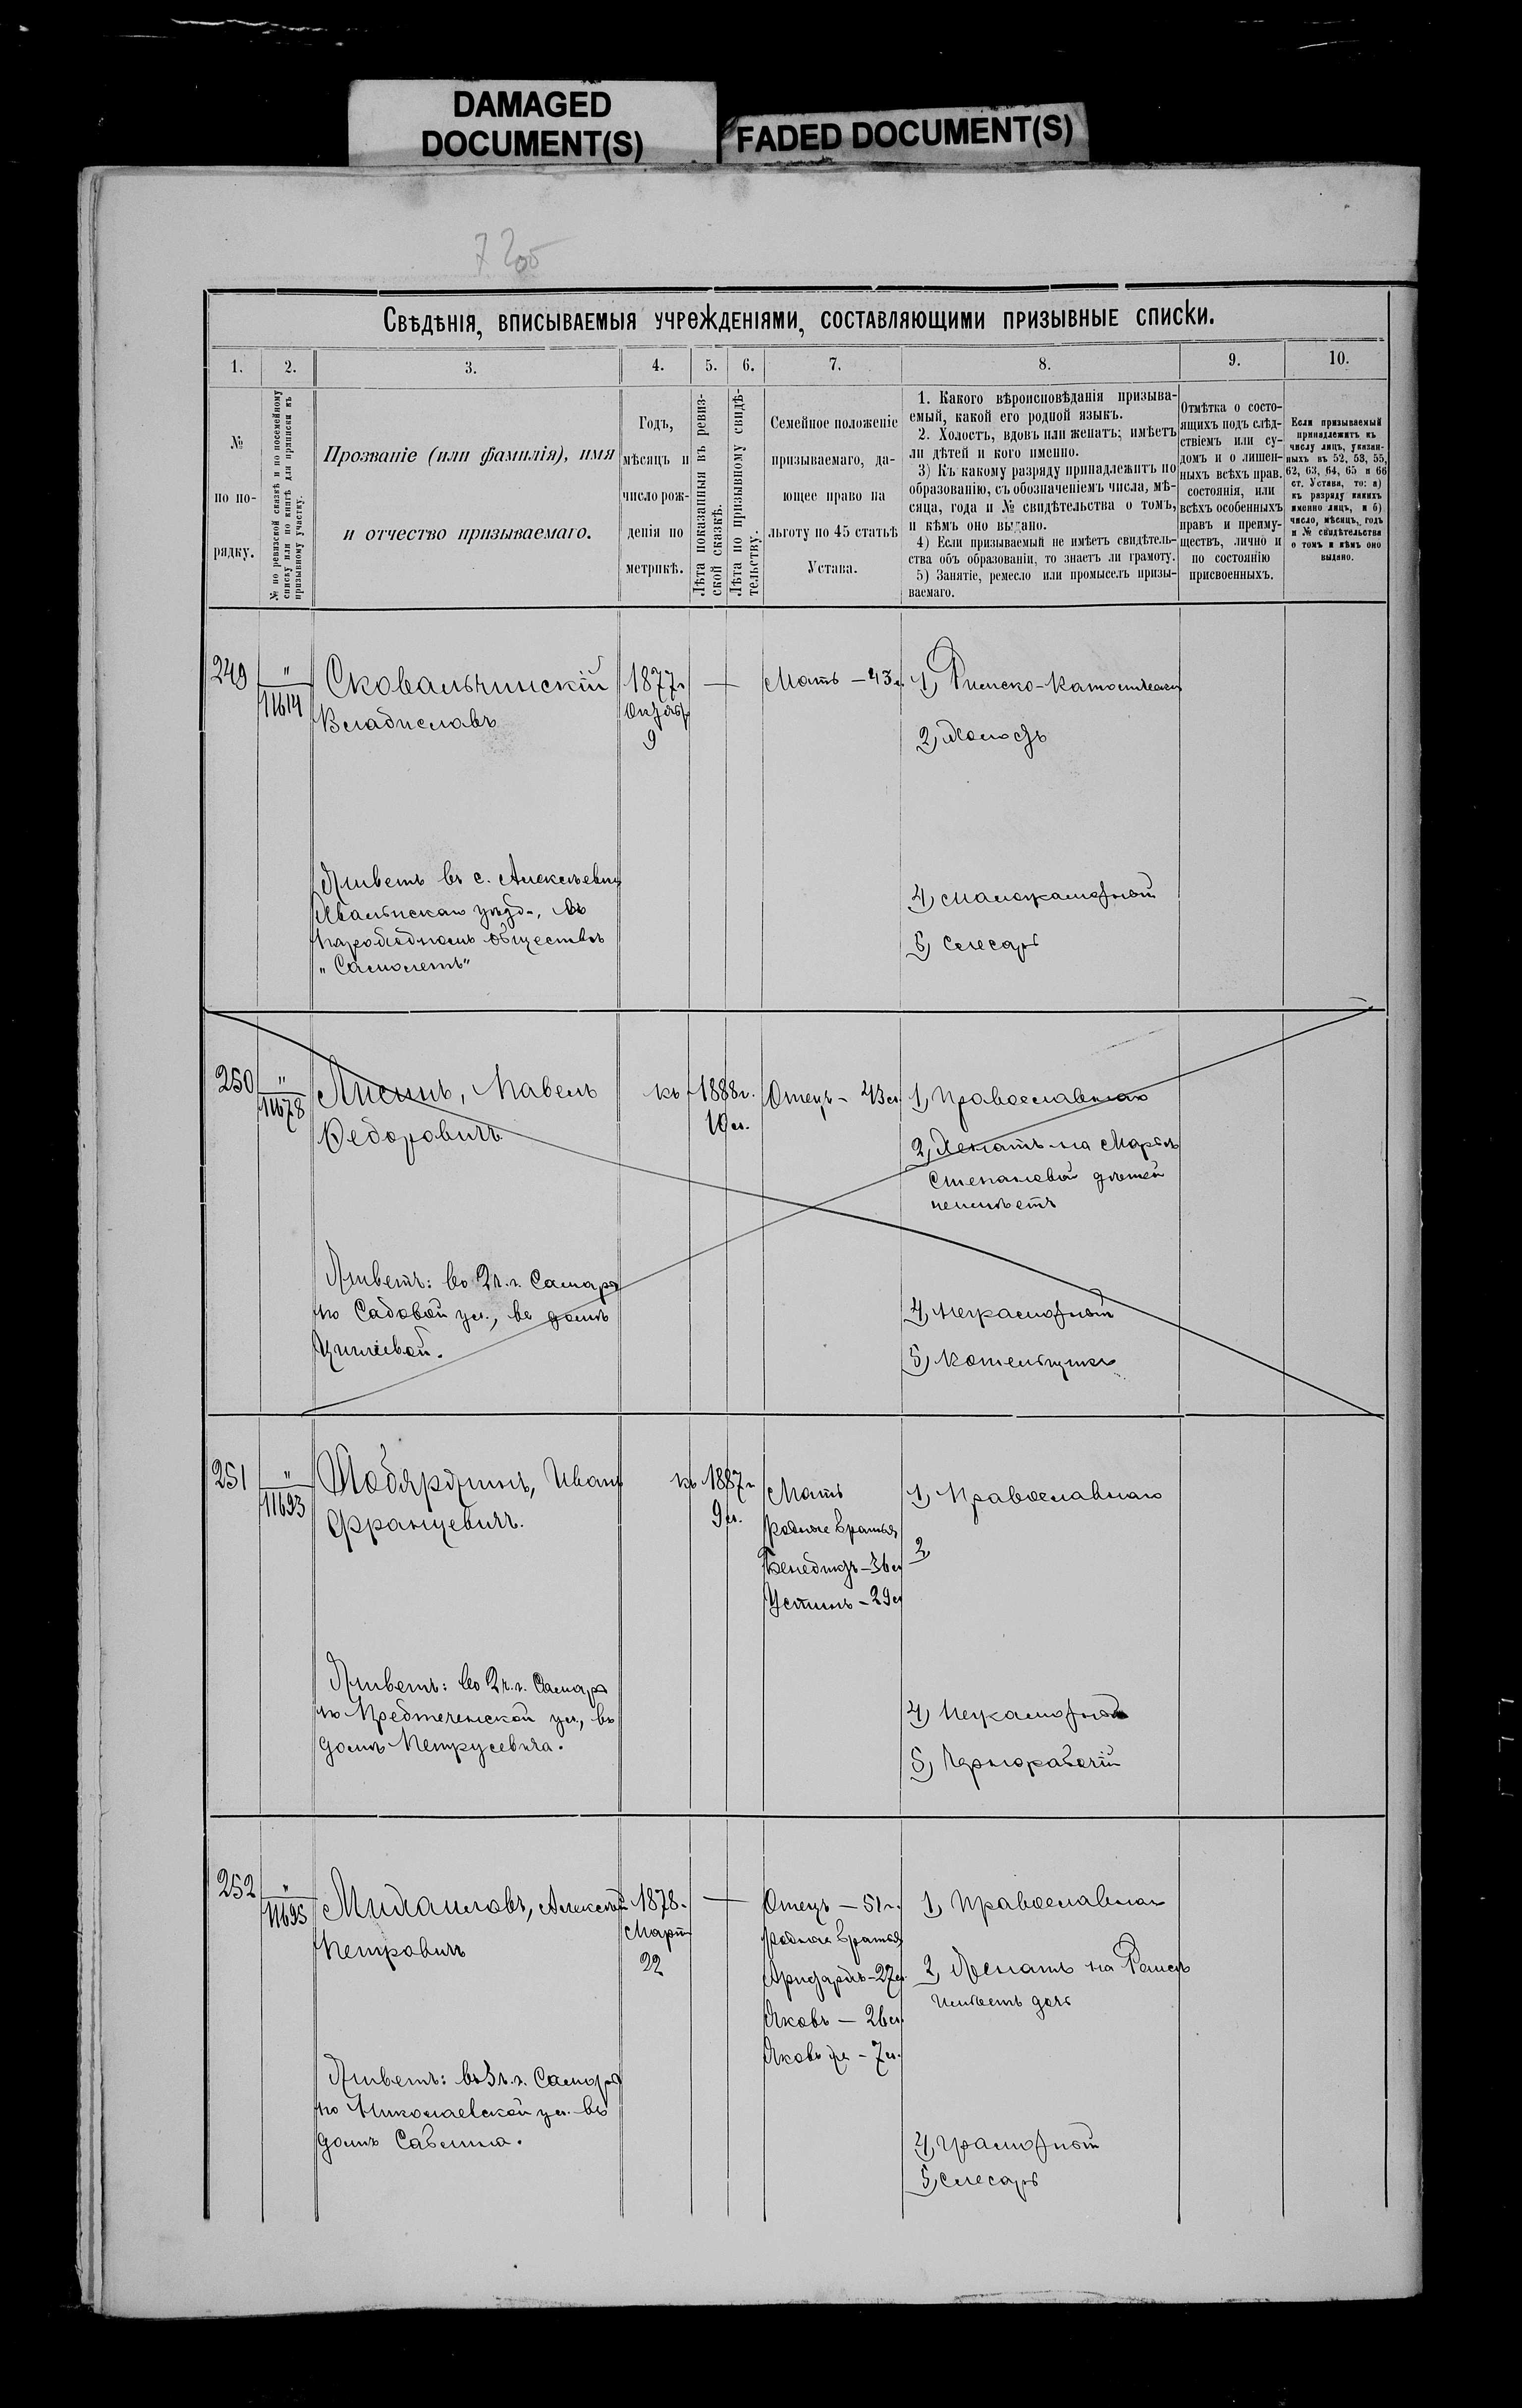 DAMAGED
DOCUMENT(S)
FADED DOCUMENT(S)
Свѣдѣнія, вписываемыя учрежденіями, составляющими призывные списки.
1.
2.
3.
4.
5.
6.
7.
8.
9.
10.
№
по по-
рядку.
№ по ревизской сказкѣ и по посемейному
списку или по книгѣ для приписки къ
призывному участку.
Прозваніе (или фамилія), имя
и отчество призываемаго.
Годъ,
мѣсяцъ и
число рож-
денія по
метрикѣ.
Лѣта показанныя въ ревиз-
ской сказкѣ.
Лѣта по призывному свидѣ-
тельству.
Семейное положеніе
призываемаго, да-
ющее право на
льготу по 45 статьѣ
Устава.
1. Какого вѣроисповѣданія призыва-
емый, какой его родной языкъ.
2. Холостъ, вдовъ или женатъ; имѣетъ
ли дѣтей и кого именно.
3) Къ какому разряду принадлежитъ по
образованію, съ обозначеніемъ числа, мѣ-
сяца, года и № свидѣтельства о томъ,
и кѣмъ оно выдано.
4) Если призываемый не имѣетъ свидѣтель-
ства объ образованіи, то знаетъ ли грамоту.
5) Занятіе, ремесло или промыселъ призы-
ваемаго.
Отмѣтка о состо-
ящихъ подъ слѣд-
ствіемъ или су-
домъ и о лишен-
ныхъ всѣхъ прав.
состоянія, или
всѣхъ особенныхъ
правъ и преиму-
ществъ, лично и
по состоянію
присвоенныхъ.
Если призываемый
принадлежитъ къ
числу лицъ, указан-
ныхъ въ 52, 53, 55,
62, 63, 64, 65 и 66
ст. Устава, то: а)
къ разряду какихъ
именно лицъ, и б)
число, мѣсяцъ, годъ
и № свидѣтельства
о томъ и кѣмъ оно
выдано.
249
"
11614
Сковальчинскій
Владиславъ
1877г
Октябр
9
—
Мать — 43 л.
1) Римско-Католическаго
2) Холостъ
Живетъ въ с. Алексѣевкѣ
Хвалынскаго уѣзд., въ
пароходномъ обществѣ
"Самолетъ"
4) малограмотной
5) слесарь
250
"
11678
Лисинъ, Павелъ
Федоровичъ
къ 1888г.
10 л.
Отецъ — 43 л
1) Православнаго
2) Женатъ на Марьѣ
Степановой дѣтей
неимѣетъ
Живетъ: во 2 ч. г. Самары
по Садовой ул., въ домѣ
4) Неграмотной
5) Котельщикъ
251
"
11693
Иванъ
Францевичъ.
къ 1887г
9 л.
Мать
родные братья
Бенедиктъ — 36 л
Устинъ — 29 л
1) Православнаго
2)
Живетъ: во 2 ч. г. Самары
по Предтеченской ул., въ
домѣ Петрусевича.
4) Неграмотной
5) Чернорабочій
252
"
11695
Михаиловъ, Алексѣй
Петровичъ
1878.
Март
22
—
Отецъ — 51 г.
родные братья
— 27 л.
Яковъ — 26 л.
Яковъ же — 7 л.
1) Православнаго
2) Женатъ на
Имѣетъ дочь
Живетъ: въ 3 ч. г. Самары
по Николаевской ул. въ
домѣ Савельева.
4) грамотной
5) слесарь